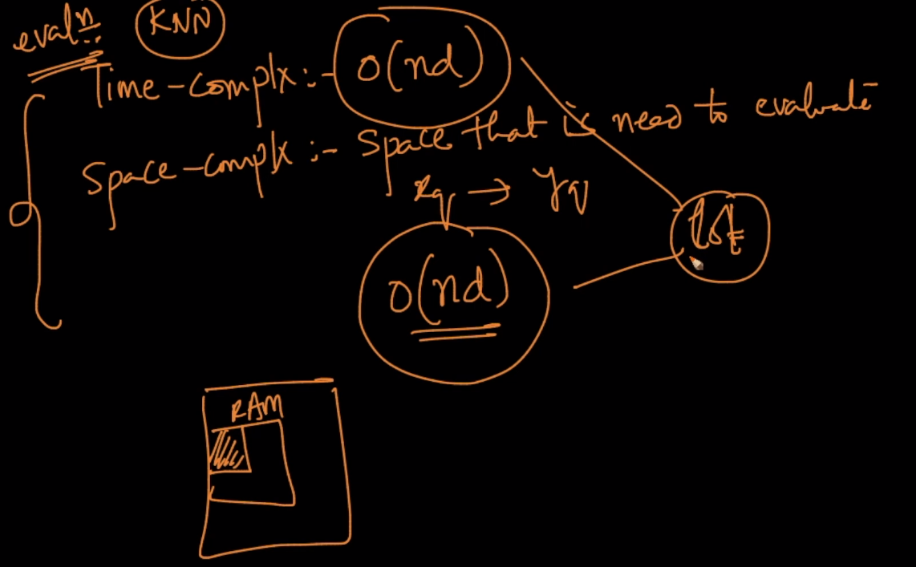 evaln KNN
Time-complx:- O(nd)
Space-complx:- Space that is need to evaluate
xq → yq
O(nd)
lot
RAM